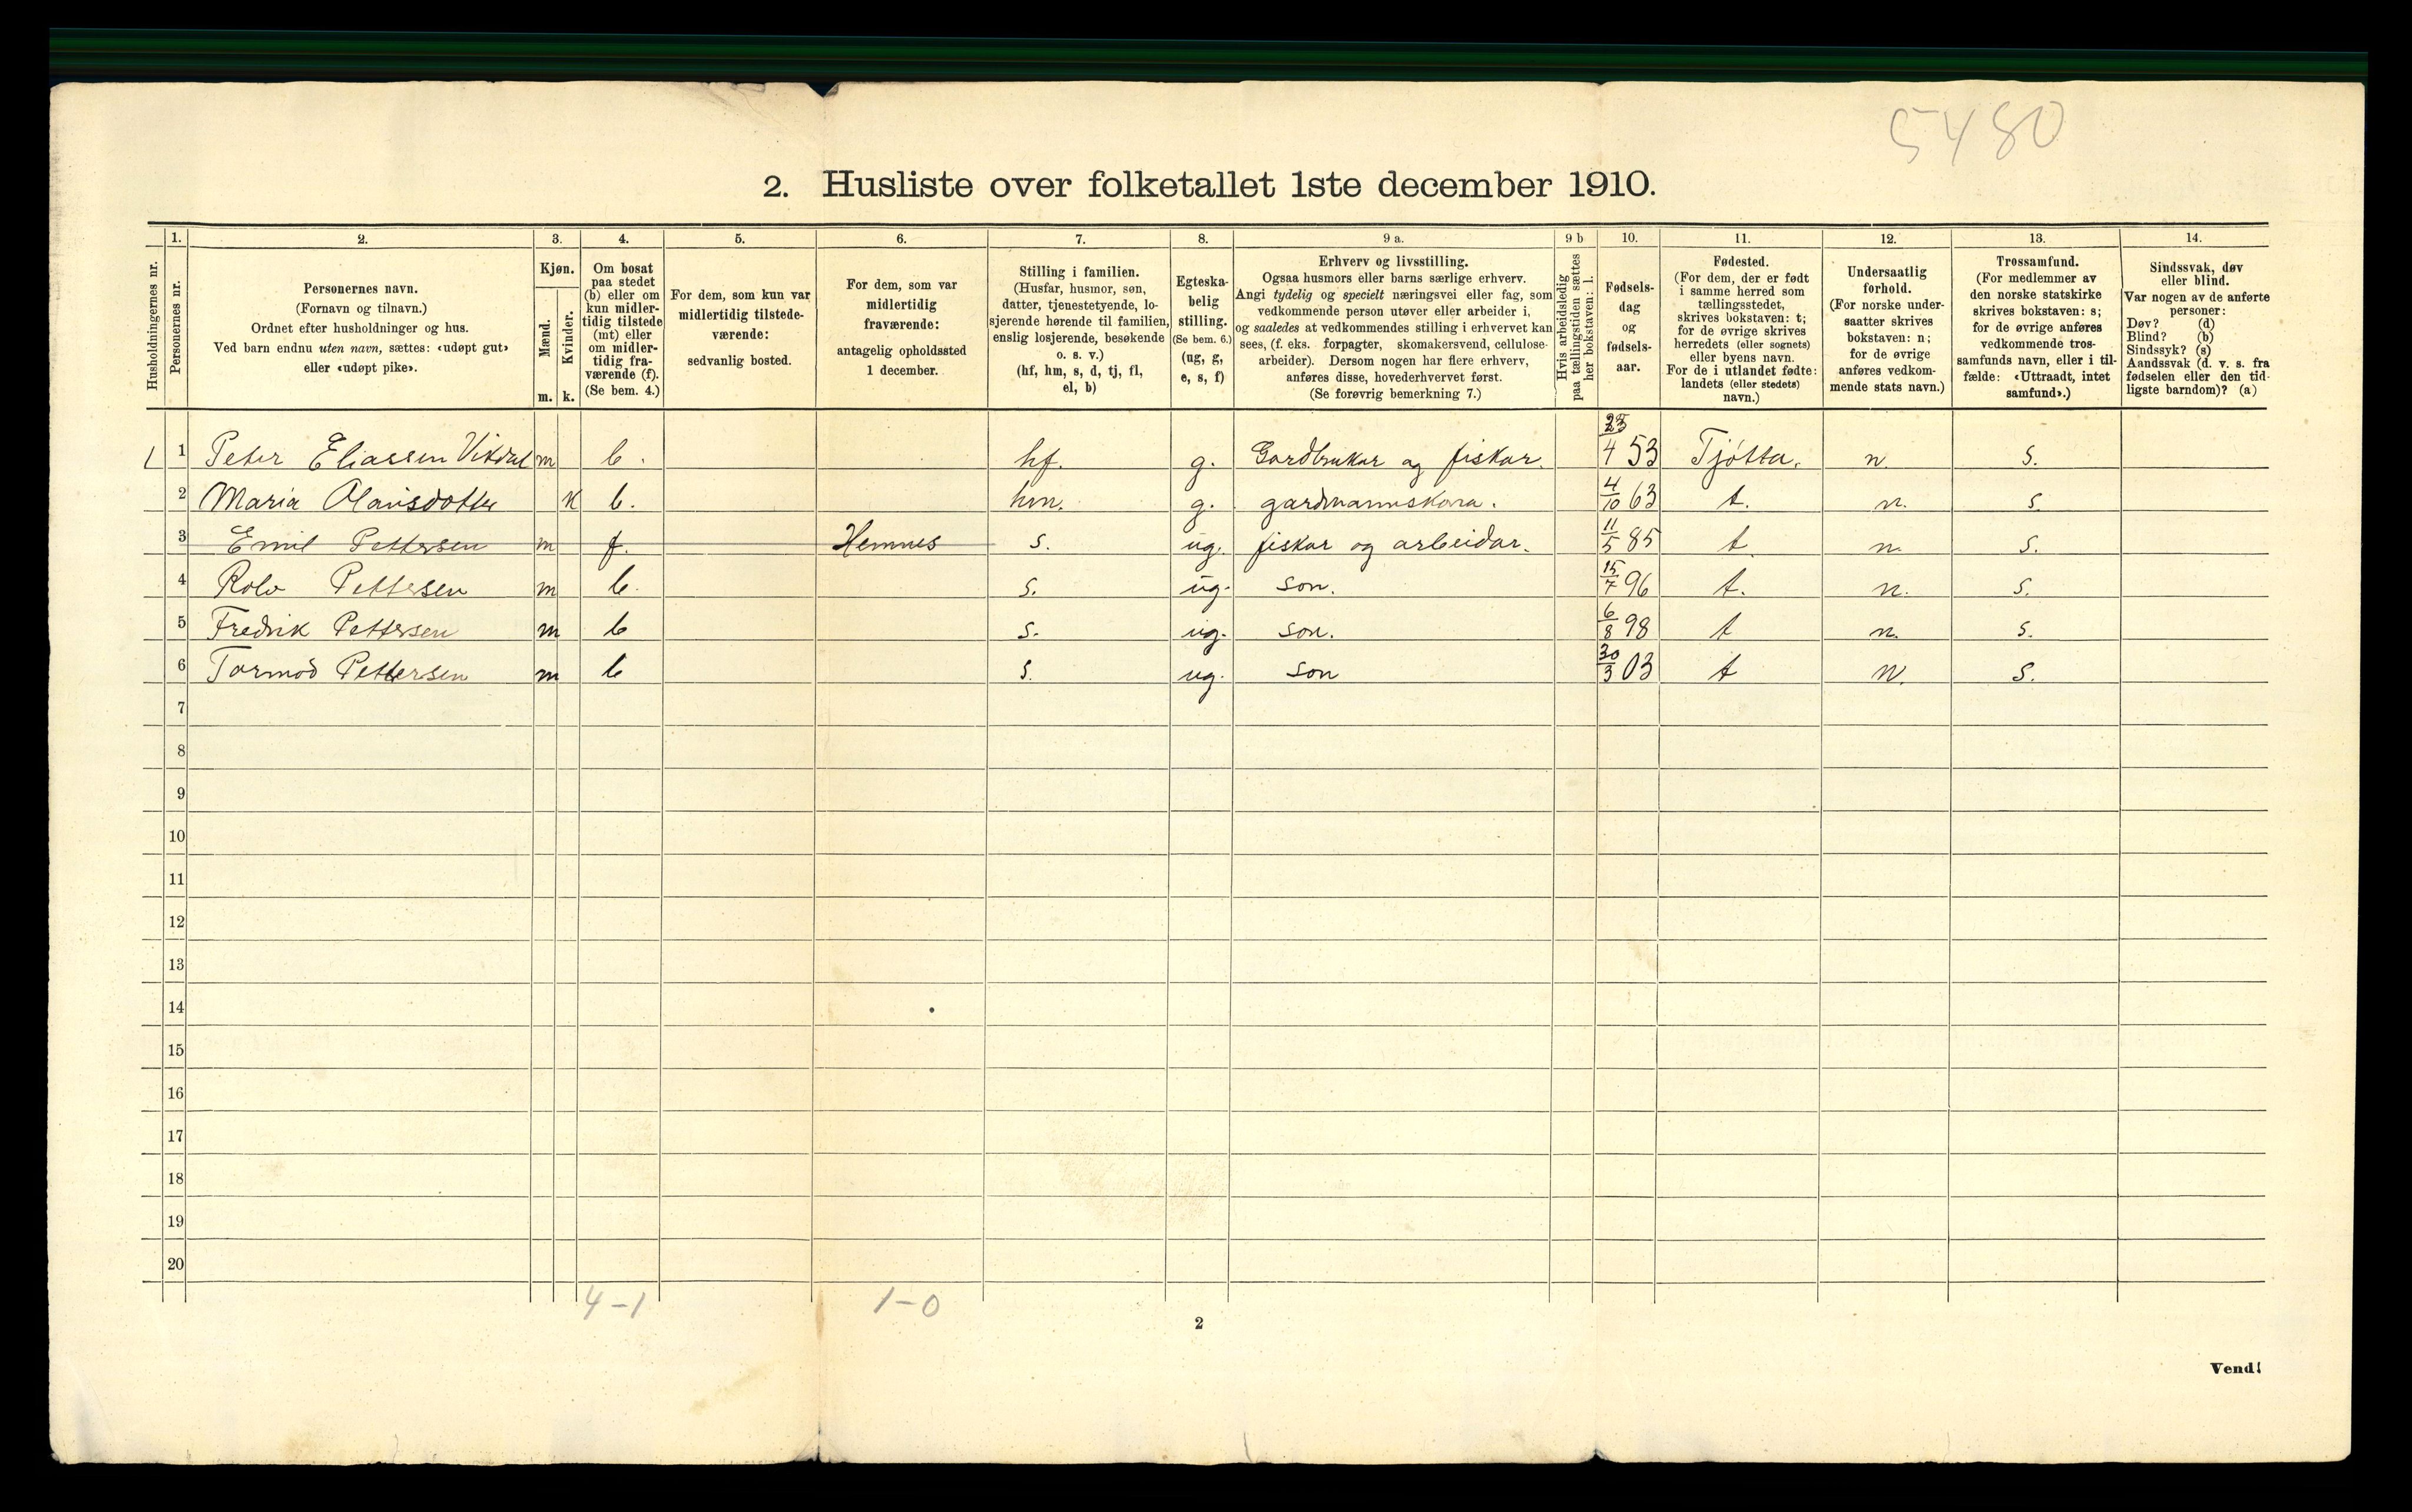 5480
2. Husliste over folketallet 1ste december 1910.
Husholdningernes nr.
1.
Personernes nr.
2.
Personernes navn.
(Fornavn og tilnavn.)
Ordnet efter husholdninger og hus.
Ved barn endnu uten navn, sættes: «udøpt gut»
eller «udøpt pike».
3.
Kjøn.
Mænd.
Kvinder.
m. k.
4.
Om bosat
paa stedet
(b) eller om
kun midler-
tidig tilstede
(mt) eller
om midler-
tidig fra-
værende (f).
(Se bem. 4.)
5.
For dem, som kun var
midlertidig tilstede-
værende:
sedvanlig bosted.
6.
For dem, som var
midlertidig
fraværende:
antagelig opholdssted
1 december.
7.
Stilling i familien.
(Husfar, husmor, søn,
datter, tjenestetyende, lo-
sjerende hørende til familien,
enslig losjerende, besøkende
o. s. v.)
(hf, hm, s, d, tj, fl,
el, b)
8.
Egteska-
belig
stilling.
(Se bem. 6.)
(ug, g,
e, s, f)
9 a.
Erhverv og livsstilling.
Ogsaa husmors eller barns særlige erhverv.
Angi tydelig og specielt næringsvei eller fag, som
vedkommende person utøver eller arbeider i,
og saaledes at vedkommendes stilling i erhvervet kan
sees, (f. eks. forpagter, skomakersvend, cellulose-
arbeider). Dersom nogen har flere erhverv,
anføres disse, hovederhvervet først.
(Se forøvrig bemerkning 7.)
9 b
Hvis arbeidsledig
paa tællingstiden sættes
her bokstaven: l.
10.
Fødsels-
dag
og
fødsels-
aar.
11.
Fødested.
(For dem, der er født
i samme herred som
tællingsstedet,
skrives bokstaven: t;
for de øvrige skrives
herredets (eller sognets)
eller byens navn.
For de i utlandet fødte:
landets (eller stedets)
navn.)
12.
Undersaatlig
forhold.
(For norske under-
saatter skrives
bokstaven: n;
for de øvrige
anføres vedkom-
mende stats navn.)
13.
Trossamfund.
(For medlemmer av
den norske statskirke
skrives bokstaven: s;
for de øvrige anføres
vedkommende tros-
samfunds navn, eller i til-
fælde: «Uttraadt, intet
samfund».)
14.
Sindssvak, døv
eller blind.
Var nogen av de anførte
personer:
Døv? (d)
Blind? (b)
Sindssyk? (s)
Aandssvak (d. v. s. fra
fødselen eller den tid-
ligste barndom)? (a)
1 Peter Eliassen m b. hf. g. Gardbrukar og fiskar. 4 53 Tjøtta. n. s.
2 Maria k b. hm. g. gardmannskona. 4/10 63 t. n. s.
3 Emil Pettersen m f. Hemnes s. ug. fiskar og arbeidar. 11/5 85 t. n. s.
4 Rolv Pettersen m b. s. ug. son. 15/7 96 t. n. s.
5 Fredrik Pettersen m b s. ug. son. 6/8 98 t n. s.
6 Tormod Pettersen m b s. ug. son 30/3 03 t n. s.
7
8
9
10
11
12
13
14
15
16
17
18
19
20
4-1 1-0
2
Vend!